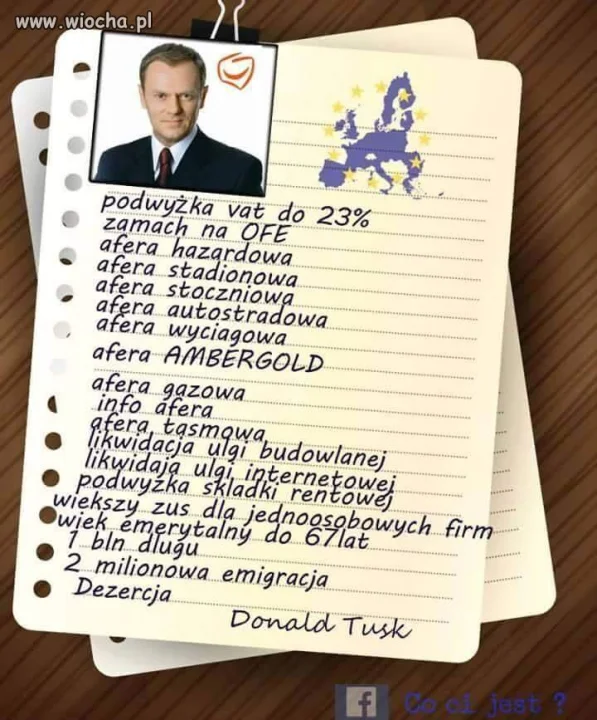 www.wiocha.pl
podwyżka vat do 23%
zamach na OFE
afera hazardowa
afera stadionowa
afera stoczniowa
afera autostradowa
afera wyciągowa
afera AMBERGOLD
afera gazowa
info afera
afera taśmowa
likwidacja ulgi budowlanej
likwidaja ulgi internetowej
podwyżka skladki rentowej
wiekszy zus dla jednoosobowych firm
wiek emerytalny do 67lat
1 bln dlugu
2 milionowa emigracja
Dezercja
Donald Tusk
f Co ci jest ?